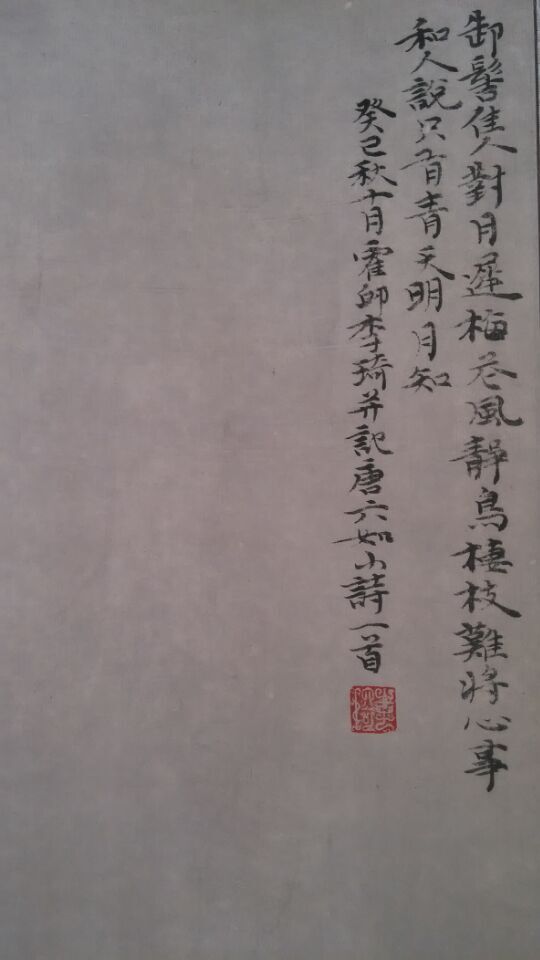 卸髻佳人對月遲梅花風靜鳥棲枝難將心事
和人說只有青天明月知
癸巳秋十月霍帥李琦并記唐六如小詩一首